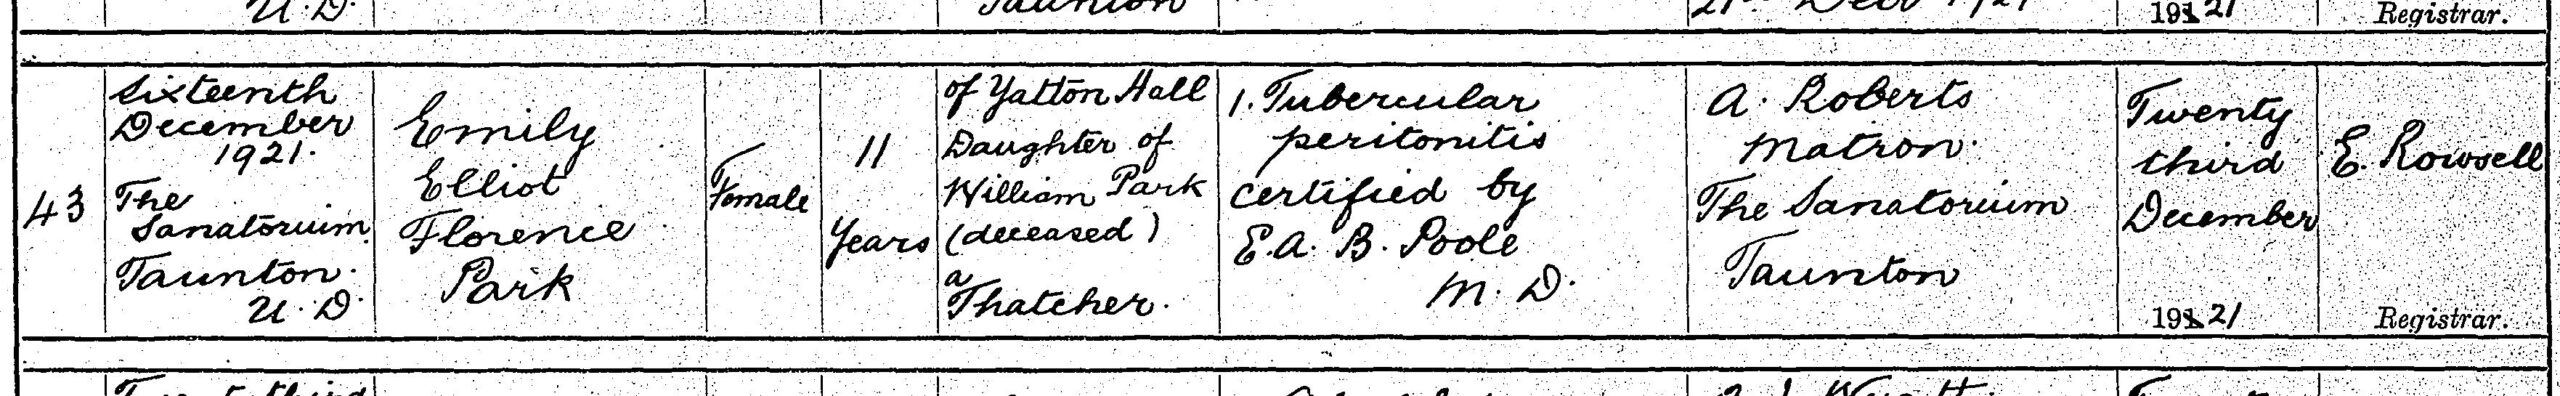 U. D.
Taunton
1921
Registrar.
43
Sixteenth
December
1921.
The
Sanatorium.
Taunton.
U. D.
Emily
Elliot
Florence
Park
Female
11
Years
of Yatton Hall
Daughter of
William Park
(deceased)
a
Thatcher.
1. Tubercular
peritonitis
certified by
E. A. B. Poole
M. D.
A. Roberts
Matron.
The Sanatorium
Taunton
Twenty
third
December
1921
E. Rowsell
Registrar.